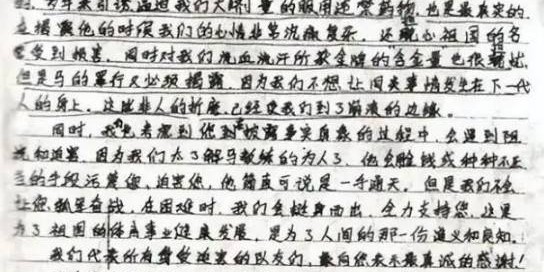 多年来引诱逼迫我们大剂量的服用违禁药物,也是最真实的
揭露他的时候我们的心情非常沉痛复杂,还就心祖国的名
受到损害,同时对我们流血流汗所获金牌的"含金量"也很担忧
但是马的罪行又必须揭露,因为我们不想让同类事情发生在下一代
人的身上,这些非人的折磨,已经使我们到了崩溃的边缘。
同时,我们也考虑到您披露事实真象的过程中,会遇到阻
挠和迫害,因为我们太了解马教练的为人了,他会用钱或种种不正
当的手段污蔑您、迫害您,他简直可说是一手通天,但是我们不会
让您孤军奋战,在困难时,我们会挺身而出,全力支持您,这是
为了祖国的体育事业健康发展,更为了人间的那一份道义和良知。
我们代表所有曾受迫害的队友们,最后向您表示最真诚的感谢!